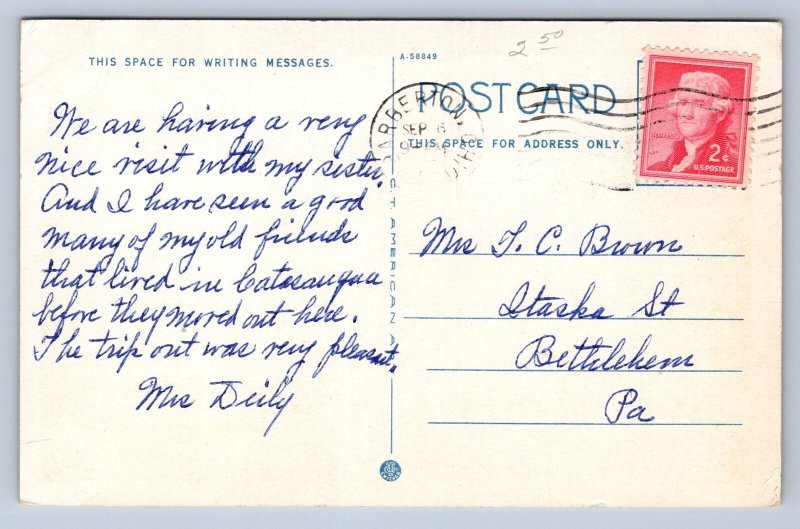 2 50
THIS SPACE FOR WRITING MESSAGES.
A-58849
POST CARD
THIS SPACE FOR ADDRESS ONLY.
BARBERTON, OHIO
SEP 6
2¢
U.S. POSTAGE
We are having a very
nice visit with my sister.
And I have seen a good
many of my old friends
that lived in Catasauqua
before they moved out here.
The trip out was very pleasant.
Mrs Deily
Mrs T. C. Brown
Itaska St
Bethlehem
Pa
CT AMERICAN